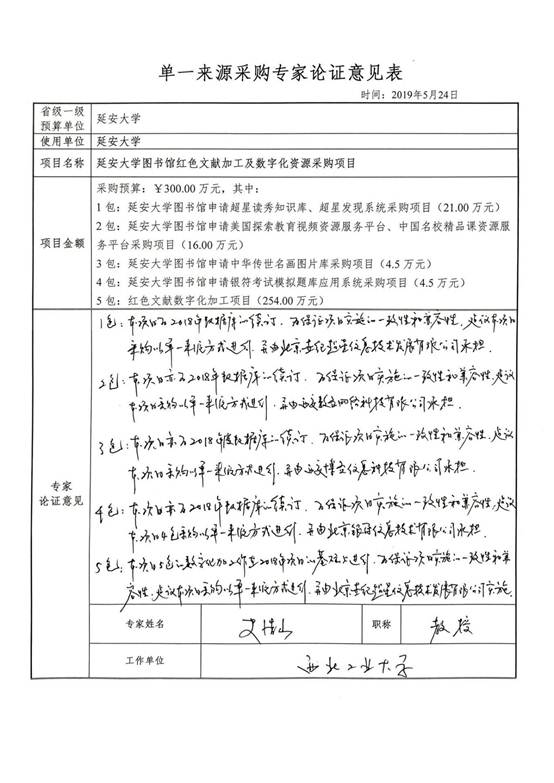 单一来源采购专家论证意见表
时间：2019年5月24日
省级一级
预算单位
延安大学
使用单位
延安大学
项目名称
延安大学图书馆红色文献加工及数字化资源采购项目
项目金额
采购预算：￥300.00万元，其中：
1 包：延安大学图书馆申请超星读秀知识库、超星发现系统采购项目（21.00 万元）
2 包：延安大学图书馆申请美国探索教育视频资源服务平台、中国名校精品课资源服
务平台采购项目（16.00 万元）
3 包：延安大学图书馆申请中华传世名画图片库采购项目（4.5 万元）
4 包：延安大学图书馆申请银符考试模拟题库应用系统采购项目（4.5 万元）
5 包：红色文献数字化加工项目（254.00 万元）
专家
论证意见
1包：本次日为2018年数据库的续订，为保证项目实施的一致性和兼容性，建议本项目
采购以单一来源方式进行，并由北京世纪超星信息技术发展有限公司承担．
2包：本项目亦为2018年数据库的续订，为保证项目实施的一致性和兼容性，建议
本项目采购以单一来源方式进行，并由西安数立网络科技有限公司承担．
3包：本项目亦为2018年度数据库的续订，为保证项目实施的一致性和兼容性，建议
本项目采购以单一来源方式进行，并由西安博立信息科技有限公司承担．
4包：本项目亦为2018年数据库的续订，为保证项目实施的一致性和兼容性，建议
本项目4包采购以单一来源方式进行，并由北京银符信息技术有限公司承担．
5包：本项目5包的数字化加工作在2018年项目的基础上进行，为保证项目实施的一致性和兼
容性，建议本项目采购以单一来源方式进行，并由北京世纪超星信息技术发展有限公司实施．
专家姓名
职称
教授
工作单位
西北工业大学